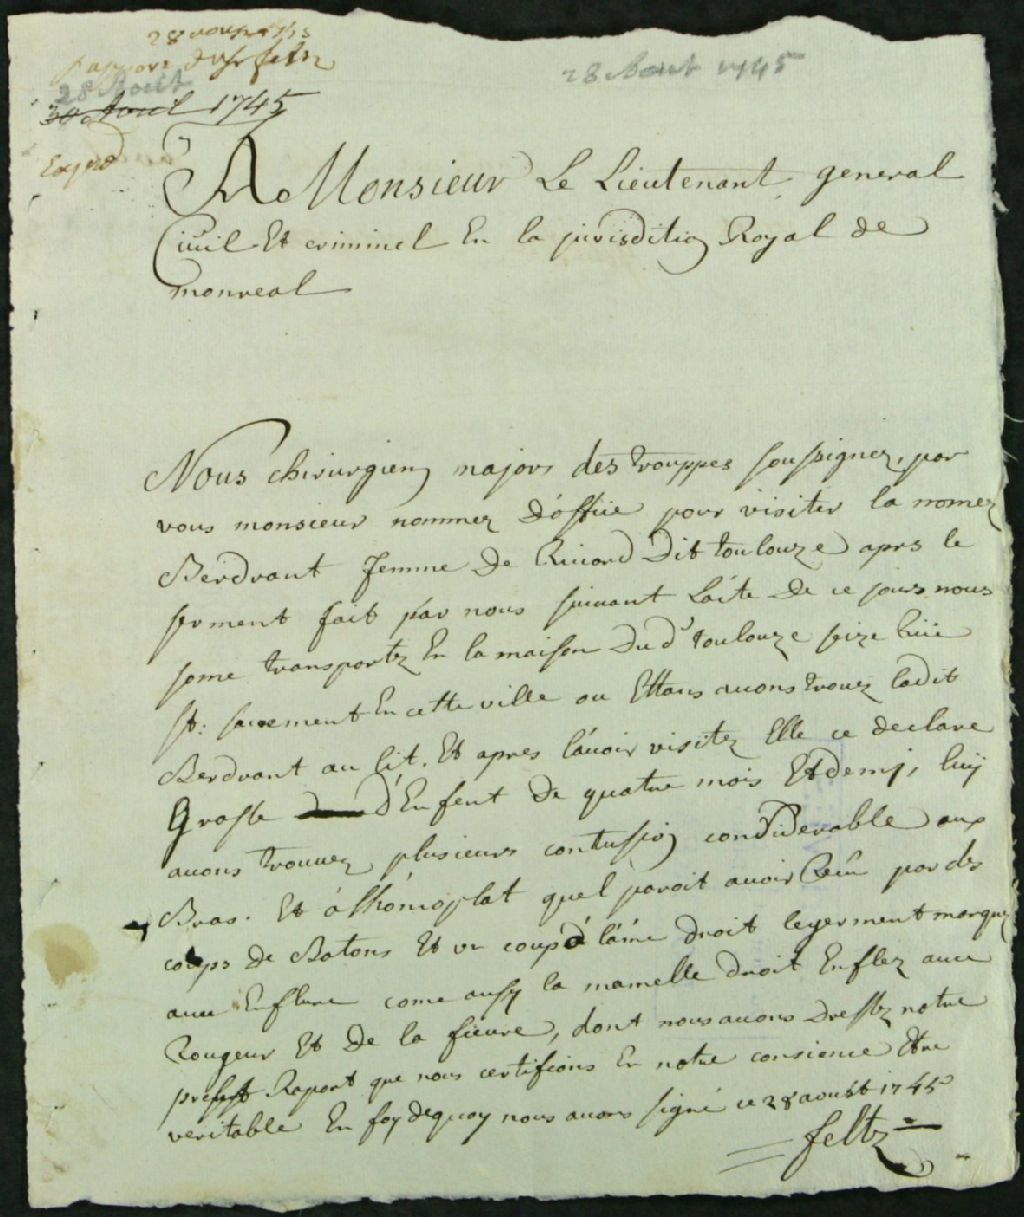 28 aoust 1745
Rapport du sr feltz
28 Août
30 Avril 1745
28 Aout 1745
A Monsieur Le Lieutenant general
Civil Et criminel En la jurisdition Royal de
monreal
Nous chirurgien major des trouppes soussignez, par
vous monsieur nommez d'offiie pour visiter la nomez
Berdvant femme de Ricard dit toulouze aprs le
serment fait par nous suivant l'aite de ce jours nous
some transportez En la maison dud toulouze size Ruë
st: sacrement En cette ville ou Ettans auons trouez ladit
Berdvant au lit. Et apres l'auoir visitez Elle ce declare
Grosse d'Enfent de quatre mois Et demj, luij
auons trouuez plusieurs contussion considerable aux
Bras. Et a l'homoplat quel paroit auoir Reçû par des
coups de Batons Et un coup à l'aine droit legerment marquez
auec Enflure come aussy la mamelle droit Enflez auec
Rougeur Et de la fieure, dont nous auons dressez notre
present Raport que nous certifions En notre consience Etre
veritable En foy de quoy nous auons signé ce 28 aoust 1745
feltz